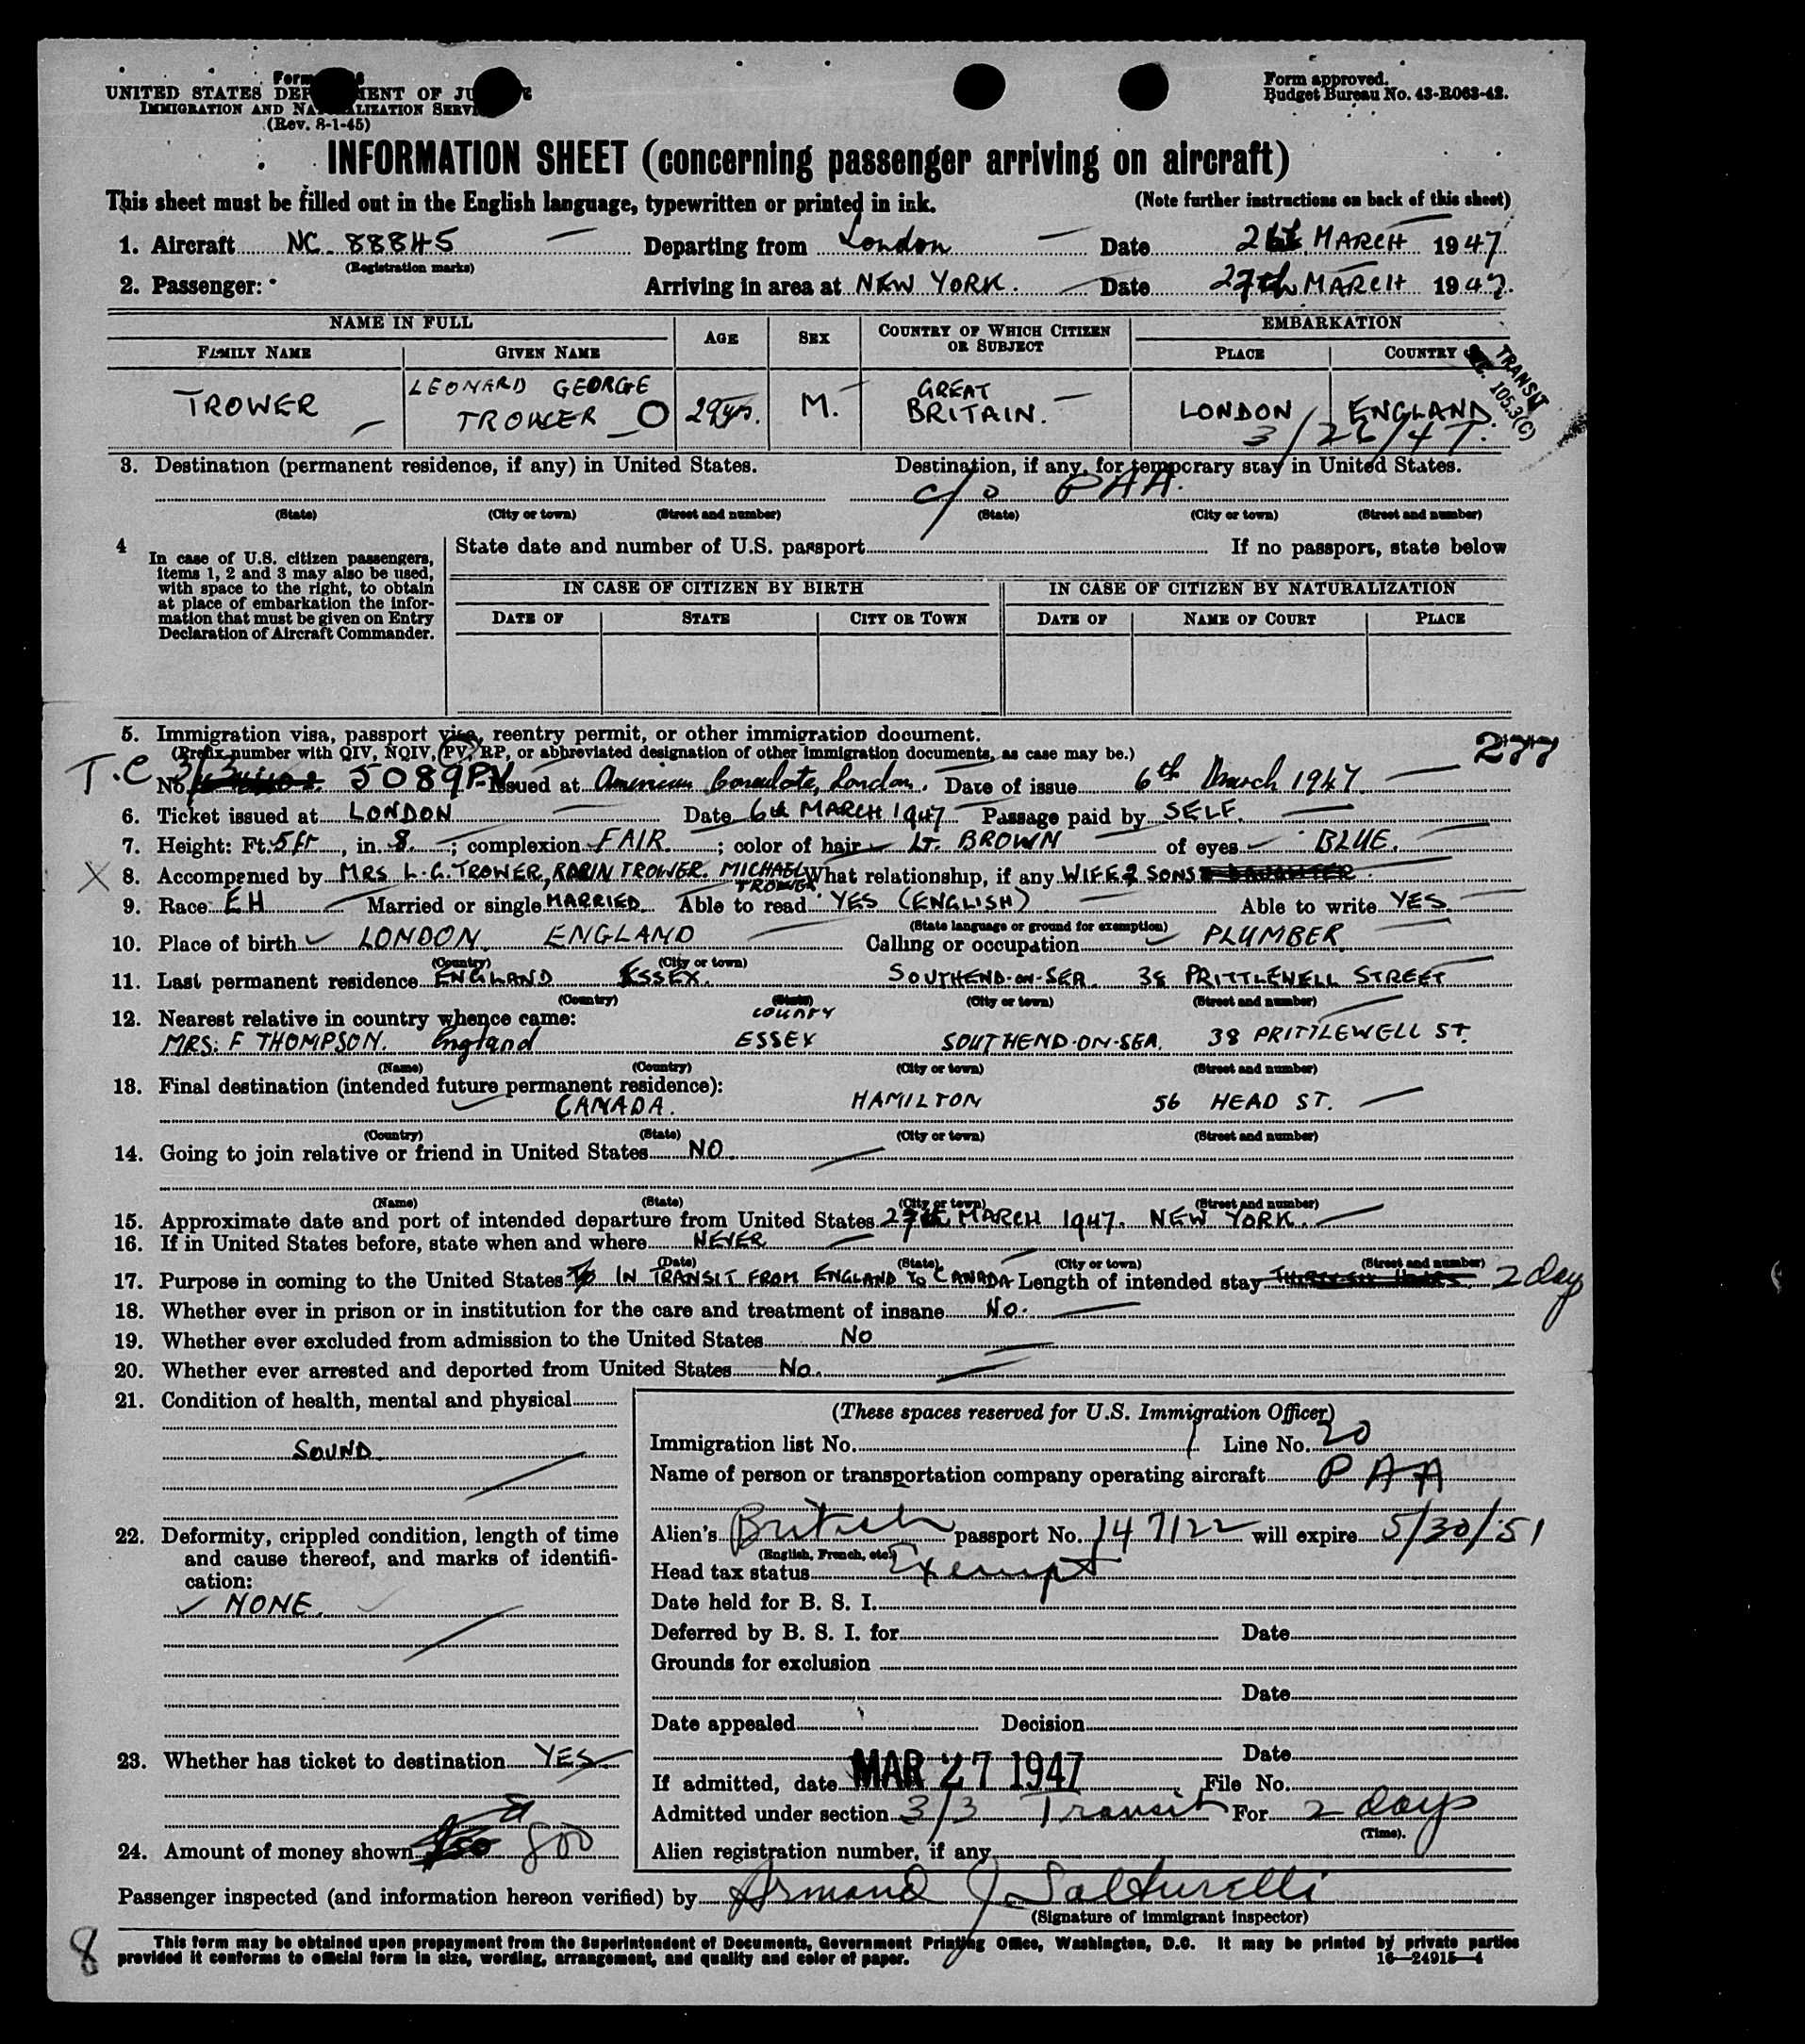 UNITED STATES DEPARTMENT OF JUSTICE
IMMIGRATION AND NATURALIZATION SERVICE
(Rev. 8-1-45)
Form approved.
Budget Bureau No. 43-R063-42.
INFORMATION SHEET (concerning passenger arriving on aircraft)
This sheet must be filled out in the English language, typewritten or printed in ink. (Note further instructions on back of this sheet)
1. Aircraft NC 88845 Departing from London Date 26th MARCH 1947
(Registration marks)
2. Passenger: Arriving in area at NEW YORK. Date 27th MARCH 1947.
NAME IN FULL AGE SEX COUNTRY OF WHICH CITIZEN OR SUBJECT EMBARKATION
FAMILY NAME GIVEN NAME PLACE COUNTRY
TRANSIT
105.3(C)
LEONARD GEORGE GREAT
TROWER TROWER O 29 yrs. M. BRITAIN. LONDON ENGLAND.
3/26/47.
3. Destination (permanent residence, if any) in United States. Destination, if any, for temporary stay in United States.
c/o PAA.
(State) (City or town) (Street and number) (State) (City or town) (Street and number)
4 In case of U.S. citizen passengers, items 1, 2 and 3 may also be used, with space to the right, to obtain at place of embarkation the information that must be given on Entry Declaration of Aircraft Commander.
State date and number of U.S. passport If no passport, state below
IN CASE OF CITIZEN BY BIRTH IN CASE OF CITIZEN BY NATURALIZATION
DATE OF STATE CITY OR TOWN DATE OF NAME OF COURT PLACE
5. Immigration visa, passport visa, reentry permit, or other immigration document.
(Prefix number with QIV, NQIV, PV, RP, or abbreviated designation of other immigration documents, as case may be.) 277
T.C. 3/3 No. 5089 PV Issued at American Consulate, London. Date of issue 6th March 1947
6. Ticket issued at LONDON Date 6th MARCH 1947 Passage paid by SELF.
7. Height: Ft. 5 ft, in. 8. ; complexion FAIR ; color of hair LT. BROWN of eyes BLUE.
X 8. Accompanied by MRS L.G. TROWER, ROBIN TROWER. MICHAEL TROWER What relationship, if any WIFE & SONS
9. Race EH Married or single MARRIED Able to read YES (ENGLISH) Able to write YES.
(State language or ground for exemption)
10. Place of birth LONDON. ENGLAND Calling or occupation PLUMBER
(Country) (City or town)
11. Last permanent residence ENGLAND ESSEX. SOUTHEND-ON-SEA. 38 PRITTLEWELL STREET
(Country) (State) (City or town) (Street and number)
COUNTY
12. Nearest relative in country whence came:
MRS. F THOMPSON. England ESSEX SOUTHEND-ON-SEA. 38 PRITTLEWELL ST.
(Name) (Country) (City or town) (Street and number)
13. Final destination (intended future permanent residence):
CANADA. HAMILTON 56 HEAD ST.
(Country) (State) (City or town) (Street and number)
14. Going to join relative or friend in United States NO.
(Name) (State) (City or town) (Street and number)
15. Approximate date and port of intended departure from United States 27th MARCH 1947. NEW YORK.
16. If in United States before, state when and where NEVER
(Date) (State) (City or town) (Street and number)
17. Purpose in coming to the United States IN TRANSIT FROM ENGLAND TO CANADA Length of intended stay THIRTY-SIX HOURS 2 day
18. Whether ever in prison or in institution for the care and treatment of insane No.
19. Whether ever excluded from admission to the United States No
20. Whether ever arrested and deported from United States No.
21. Condition of health, mental and physical
SOUND.
22. Deformity, crippled condition, length of time and cause thereof, and marks of identification:
NONE.
23. Whether has ticket to destination YES
24. Amount of money shown 800
(These spaces reserved for U.S. Immigration Officer)
Immigration list No. 1 Line No. 20
Name of person or transportation company operating aircraft PAA
Alien's British passport No. 147122 will expire 5/30/51
(English, French, etc.)
Head tax status Exempt
Date held for B. S. I.
Deferred by B. S. I. for Date
Grounds for exclusion
Date
Date appealed Decision
Date
If admitted, date MAR 27 1947 File No.
Admitted under section 3/3 Transit For 2 days
(Time).
Alien registration number, if any
Passenger inspected (and information hereon verified) by Armand J Salturelli
(Signature of immigrant inspector)
8 This form may be obtained upon prepayment from the Superintendent of Documents, Government Printing Office, Washington, D.C. It may be printed by private parties
provided it conforms to official form in size, wording, arrangement, and quality and color of paper. 16—24915-4